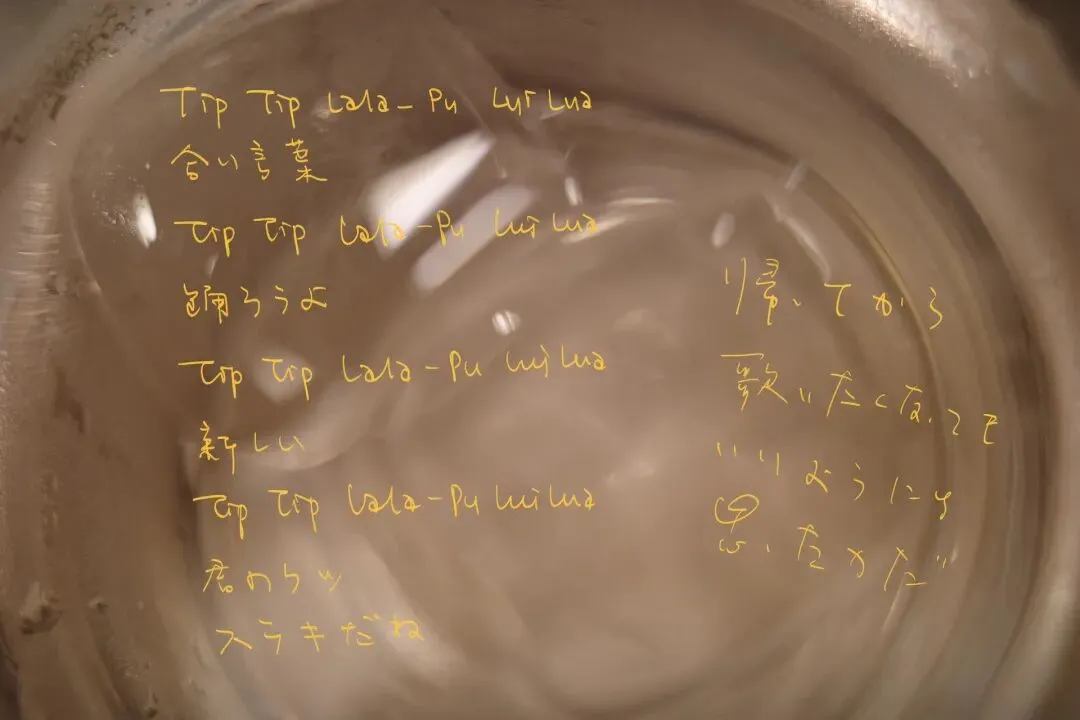 Tip Tip Lala-Pu Lui Lua
合い言葉
Tip Tip Lala-Pu Lui Lua
踊ろうよ
Tip Tip Lala-Pu Lui Lua
新しい
Tip Tip Lala-Pu Lui Lua
君の
ステキだね
帰ってから
歌いたくなっても
いいようにと
思ったのだ